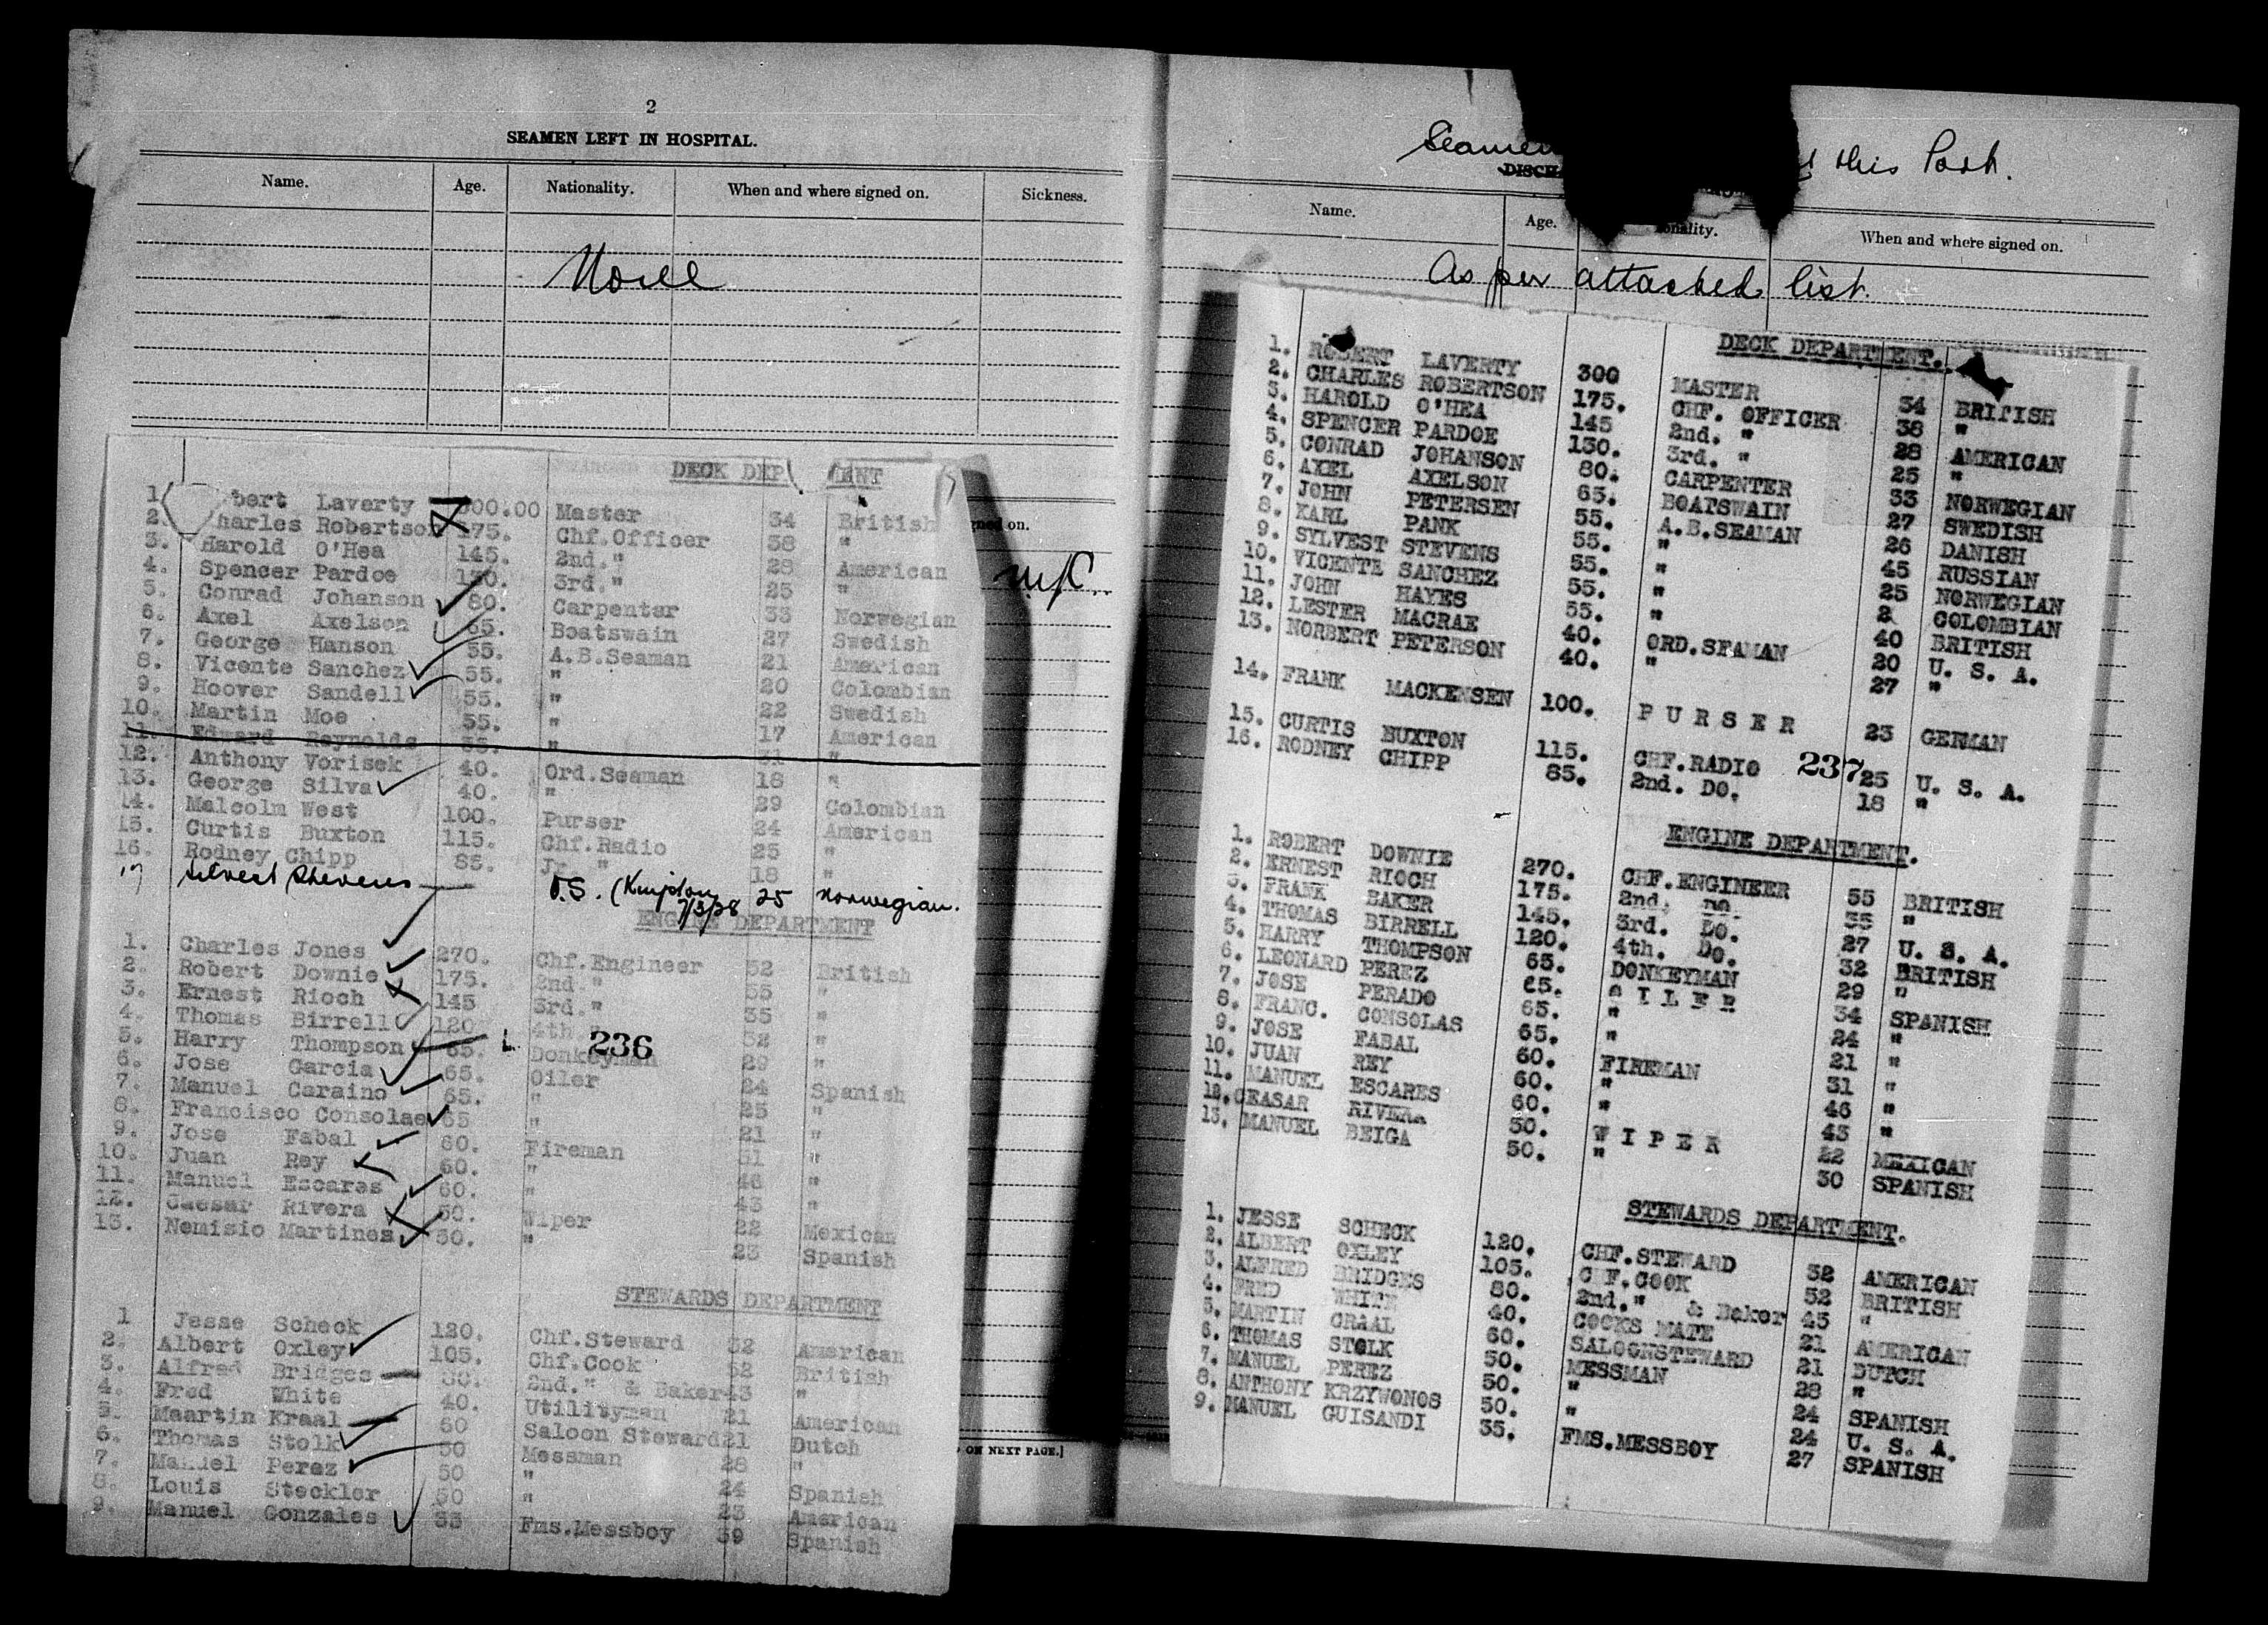 2
SEAMEN LEFT IN HOSPITAL.
Name. Age. Nationality. When and where signed on. Sickness.
None
DECK DEP ENT
1 bert Laverty 300.00 Master 34 British
2. harles Robertson 175. Chf.Officer 38 "
3. Harold O'Hea 145. 2nd." 28 American
4. Spencer Pardoe 130. 3rd." 25 "
5. Conrad Johanson 80. Carpenter 33 Norwegian
6. Axel Axelson 65. Boatswain 27 Swedish
7. George Hanson 55. A.B.Seaman 21 American
8. Vicente Sanchez 55. " 20 Colombian
9. Hoover Sandell 55. " 22 Swedish
10. Martin Moe 55. " 17 American
11. Edward Reynolds 55. " 31 "
12. Anthony Vorisek 40. Ord.Seaman 18 "
13. George Silva 40. " 29 Colombian
14. Malcolm West 100. Purser 24 American
15. Curtis Buxton 115. Chf.Radio 25 "
16. Rodney Chipp 85. Jr " 18 "
17 Silvest Stevens O.S. (Kingston 7/3/38 25 Norwegian.
ENGINE DEPARTMENT
1. Charles Jones 270. Chf.Engineer 52 British
2. Robert Downie 175. 2nd." 55 "
3. Ernest Rioch 145 3rd." 35 "
4. Thomas Birrell 120 4th 32 "
5. Harry Thompson 65. Donkeyman 29 "
236
6. Jose Garcia 65. Oiler 24 Spanish
7. Manuel Caraino 65. " 25 "
8. Francisco Consolae 65 " 21 "
9. Jose Fabal 60. Fireman 31 "
10. Juan Rey 60. " 46 "
11. Manuel Escares 60. " 43 "
12. Caesar Rivera 50. Wiper 22 Mexican
13. Nemisio Martines 50. " 23 Spanish
STEWARDS DEPARTMENT
1 Jesse Scheck 120. Chf.Steward 32 American
2. Albert Oxley 105. Chf.Cook 52 British
3. Alfred Bridges 80. 2nd." & Baker 43 "
4. Fred White 40. Utilityman 21 American
5. Maartin Kraal 60 Saloon Steward 21 Dutch
6. Thomas Stolk 50 Messman 28 "
7. Manuel Perez 50 " 24 Spanish
8. Louis Steckler 50 " 23 American
9. Manuel Gonzales 35 Fms.Messboy 39 Spanish
ned on.
ON NEXT PAGE.]
Seamen this Port.
DISCH
Name. Age. onality. When and where signed on.
As per attached list.
DECK DEPARTMENT.
1. ROBERT LAVERTY 300 MASTER 34 BRITISH
2. CHARLES ROBERTSON 175. CHF. OFFICER 38 "
3. HAROLD O'HEA 145 2nd. " 28 AMERICAN
4. SPENCER PARDOE 130. 3rd. " 25 "
5. CONRAD JOHANSON 80. CARPENTER 33 NORWEGIAN
6. AXEL AXELSON 65. BOATSWAIN 27 SWEDISH
7. JOHN PETERSEN 55. A.B.SEAMAN 26 DANISH
8. KARL PANK 55. " 45 RUSSIAN
9. SYLVEST STEVENS 55. " 25 NORWEGIAN
10. VICENTE SANCHEZ 55. " 2 COLOMBIAN
11. JOHN HAYES 55. " 40 BRITISH
12. LESTER MACRAE 40. ORD.SEAMAN 20 U. S. A.
13. NORBERT PETERSON 40. " 27 "
14. FRANK MACKENSEN 100. P U R S E R 23 GERMAN
15. CURTIS BUXTON 115. CHF.RADIO 25 U. S. A.
237
16. RODNEY CHIPP 85. 2nd. DO. 18 "
ENGINE DEPARTMENT.
1. ROBERT DOWNIE 270. CHF.ENGINEER 55 BRITISH
2. ERNEST RIOCH 175. 2nd. DO. 35 "
3. FRANK BAKER 145. 3rd. Do. 27 U. S. A.
4. THOMAS BIRRELL 120. 4th. Do. 32 BRITISH
5. HARRY THOMPSON 65. DONKEYMAN 29 "
6. LEONARD PEREZ 65. O I L E R 34 SPANISH
7. JOSE PERADO 65. " 24 "
8. FRANC. CONSOLAS 65. " 21 "
9. JOSE FABAL 60. FIREMAN 31 "
10. JUAN REY 60. " 46 "
11. MANUEL ESCARES 60. " 43 "
12. CEASAR RIVERA 50. W I P E R 22 MEXICAN
13. MANUEL BEIGA 50. " 30 SPANISH
STEWARDS DEPARTMENT.
1. JESSE SCHECK 120. CHF.STEWARD 32 AMERICAN
2. ALBERT OXLEY 105. CHF.COOK 52 BRITISH
3. ALFRED BRIDGES 80. 2nd." & Baker 43 "
4. FRED WHITE 40. COOKS MATE 21 AMERICAN
5. MARTIN CRAAL 60. SALOONSTEWARD 21 DUTCH
6. THOMAS STOLK 50. MESSMAN 28 "
7. MANUEL PEREZ 50. " 24 SPANISH
8. ANTHONY KRZYWONOS 50. " 24 U. S. A.
9. MANUEL GUISANDI 35. FMS.MESSBOY 27 SPANISH